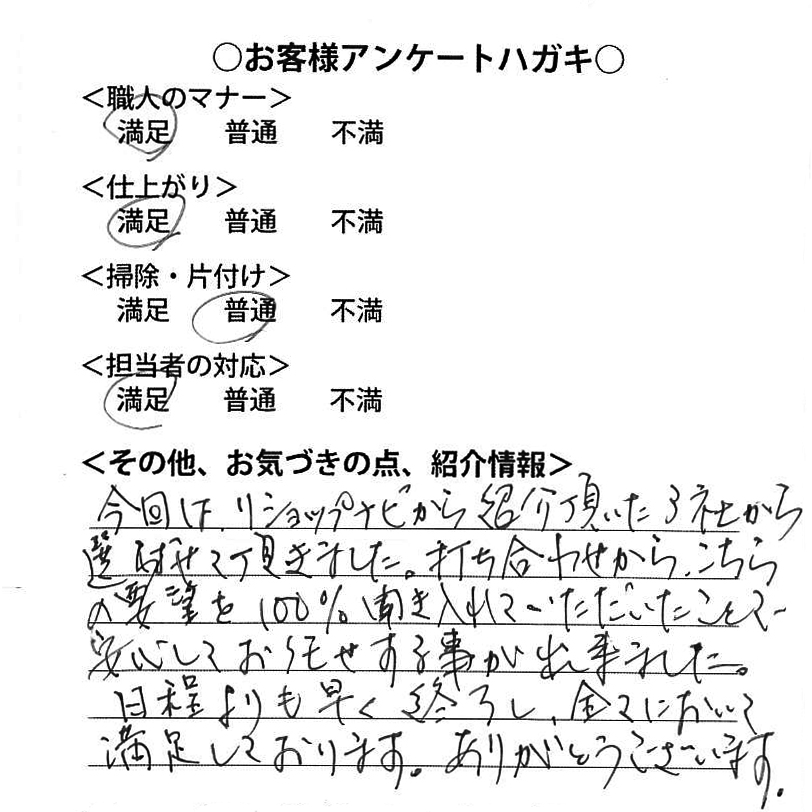 ○お客様アンケートハガキ○
＜職人のマナー＞
満足 普通 不満
＜仕上がり＞
満足 普通 不満
＜掃除・片付け＞
満足 普通 不満
＜担当者の対応＞
満足 普通 不満
＜その他、お気づきの点、紹介情報＞
今回は、リショップナビから紹介頂いた3社から
選ばせて頂きました。打ち合わせから、こちら
の要望を100%聞き入れていただいたことで
安心してお任せする事が出来ました。
日程よりも早く終了し、全てにおいて
満足しております。ありがとうございます。